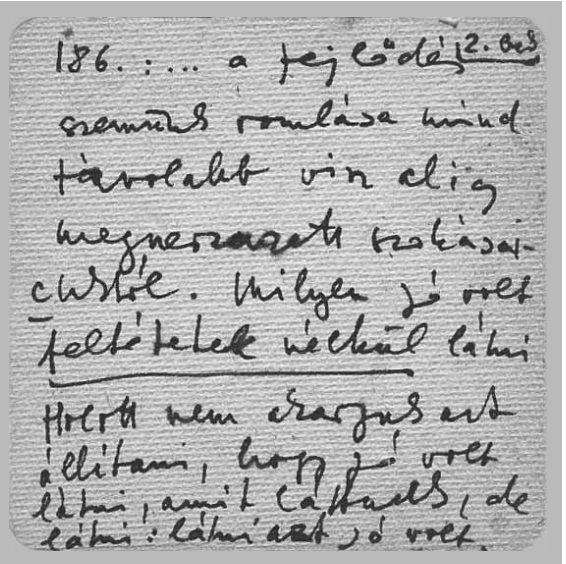 186. : ... a fejlődés, 2. bek
szemünk romlása mind
távolabb visz alig
megnevezett szokásai-
inktól. Milyen jó volt
feltételek nélkül látni
Holott nem akarjuk azt
állítani, hogy jó volt
látni, amit láttunk, de
látni: látni azt jó volt.